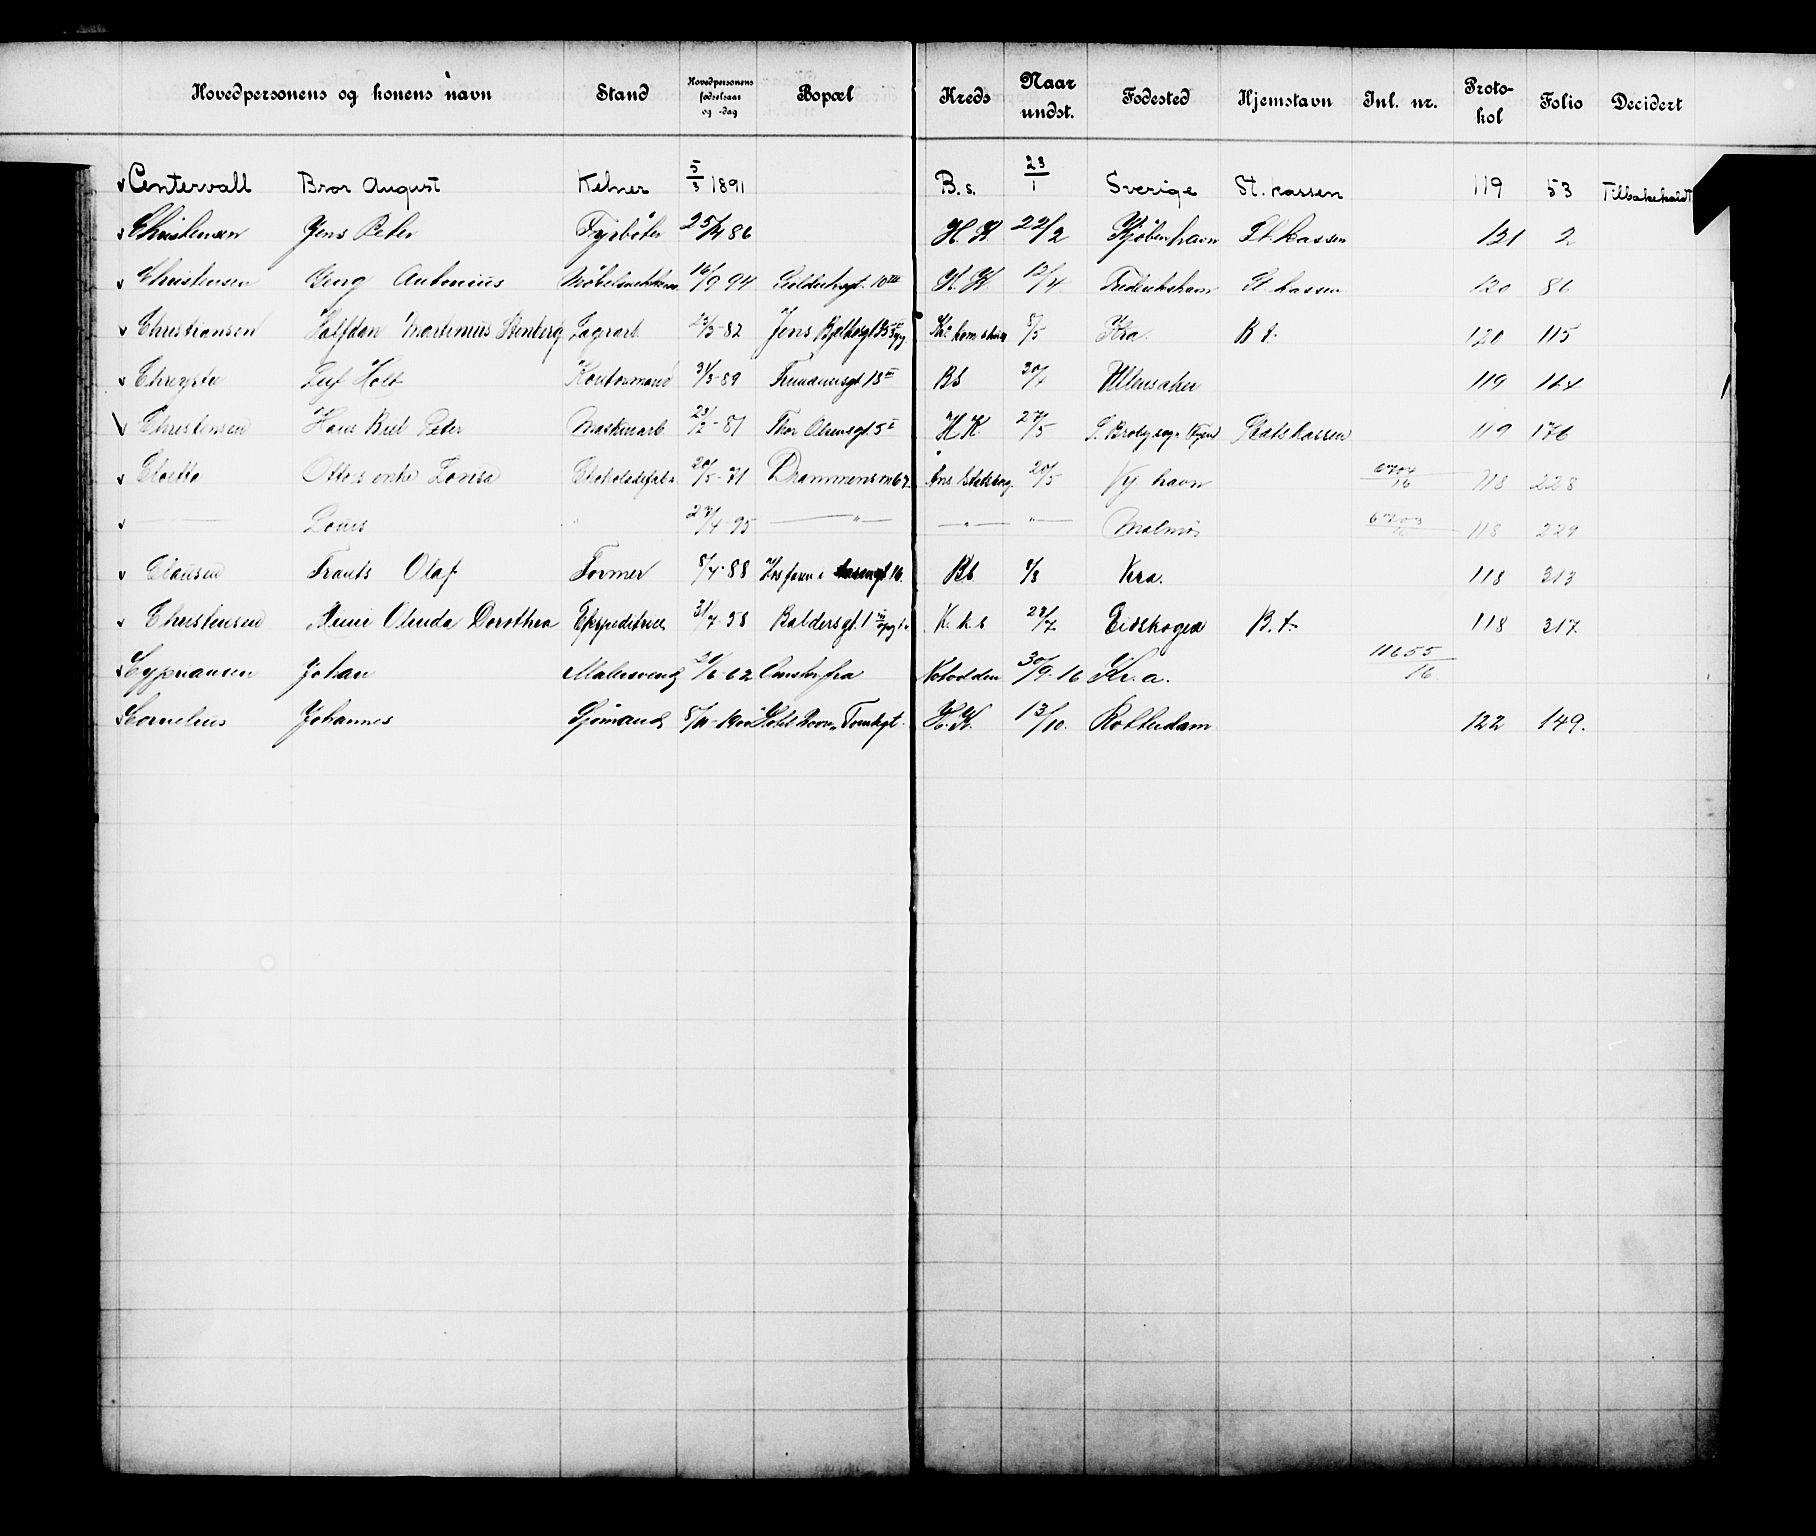 Hovedpersonens og konens navn Stand Hovedpersonens fødselsaar og -dag Bopæl Kreds Naar undst. Fødested Hjemstavn Inl. nr. Proto-kol Folio Decidert
Centervall Bror August Kelner 5/3 1891 B. s. 23/1 Sverige St. kassen 119 53 Tilbakekaldt
Christensen Jens Peter Fyrbøter 25/4 86 H. K. 22/2 Kjøbenhavn St. kassen 121 2
Christensen Georg Antonius 16/9 94 10 III H. K. 12/4 Frederikshavn St. kassen 120 86
Christiansen Halfdan Martinius Stenberg Lagrarb. 23/3-82 Jens Bjelkesgt 8/5 Kra. B. t. 120 115
Leif Holt Kontormand 31/3-89 18 III Bs Ullensaker 119 164
Christensen Hans Peter Maskinarb. 23/2-81 Thor Olsensgt 5 I H K. 27/5 Statskassen 119 176
Cloetta Lovisa 20/5-71 Drammensv 67 20/5 Kj havn 6704/16 118 228
— Louis " 27/4-95 — " — — " — — " — Malmö 6703/16 118 229
Clausen Frants Olaf Former 8/4-88 16 Bs 8/8 Kra. 118 313
Christensen Olinda Dorothea Ekspeditrice 31/7-58 Baldersgt. 1 K. k s 28/7 Eidskogen B. t. 118 317
Cypriansen Johan Malersvend 21/6-62 Omstreifra Notodden 30/9-16 Kr.a. 11655/16
Cornelius Johannes Sjømand 8/11-1900 Tomtegt. H. K. 13/10. Rotterdam 122 149.